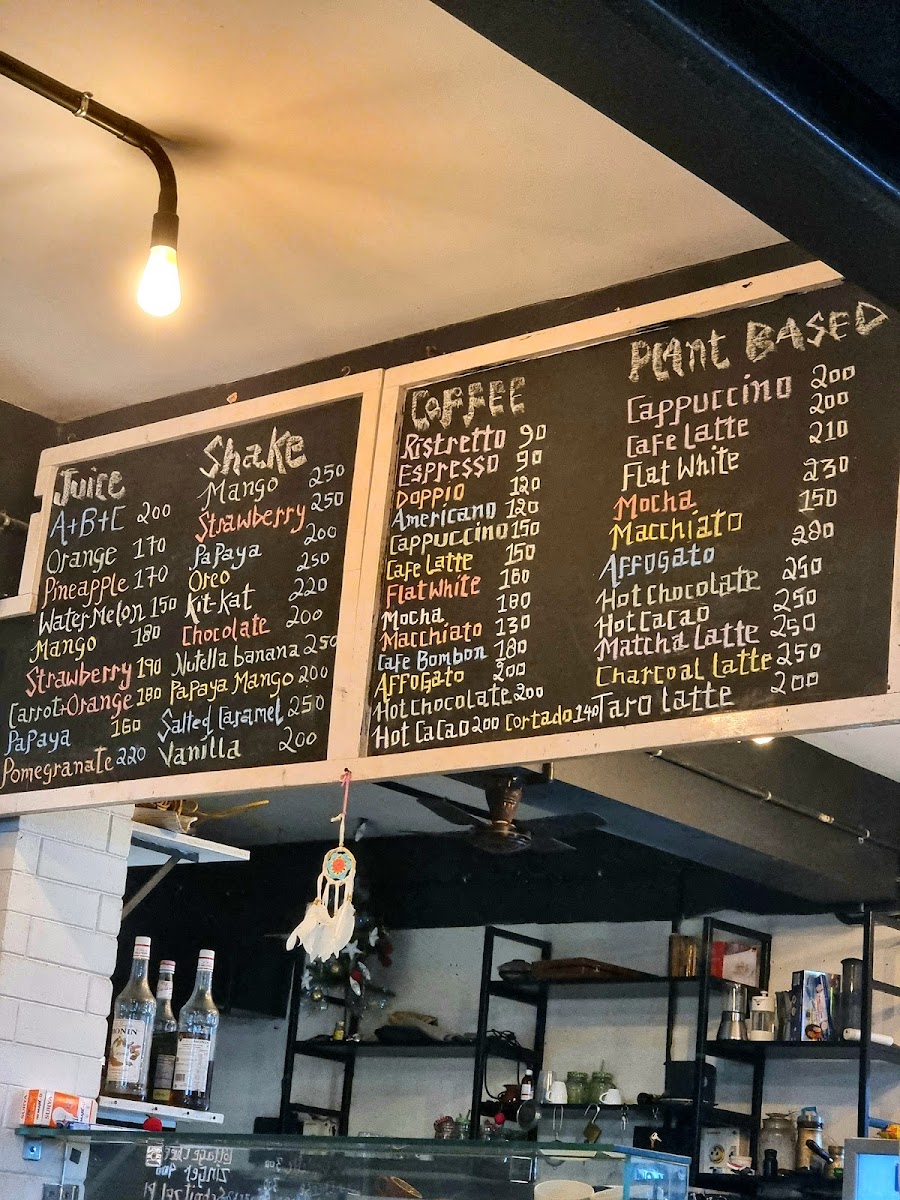 Juice
A+B+C 200
Orange 170
Pineapple 170
WaterMelon 150
Mango 180
Strawberry 190
Carrot+Orange 180
Papaya 160
Pomegranate 220
Shake
Mango 250
Strawberry 250
Papaya 200
Oreo 250
Kit-Kat 220
Chocolate 200
Nutella banana 250
Papaya Mango 200
Salted Caramel 250
Vanilla 200
COFFEE
Ristretto 90
Espresso 90
Doppio 120
Americano 120
Cappuccino 150
Cafe Latte 150
Flat White 160
Mocha 180
Macchiato 130
Cafe Bombon 180
Affogato 200
Hot Chocolate 200
Hot Cacao 200 Cortado 140
Plant BASED
Cappuccino 200
Cafe Latte 200
Flat White 210
Mocha 230
Macchiato 150
Affogato 280
Hot Chocolate 250
Hot Cacao 250
Matcha Latte 250
Charcoal Latte 250
Taro latte 200
MONIN